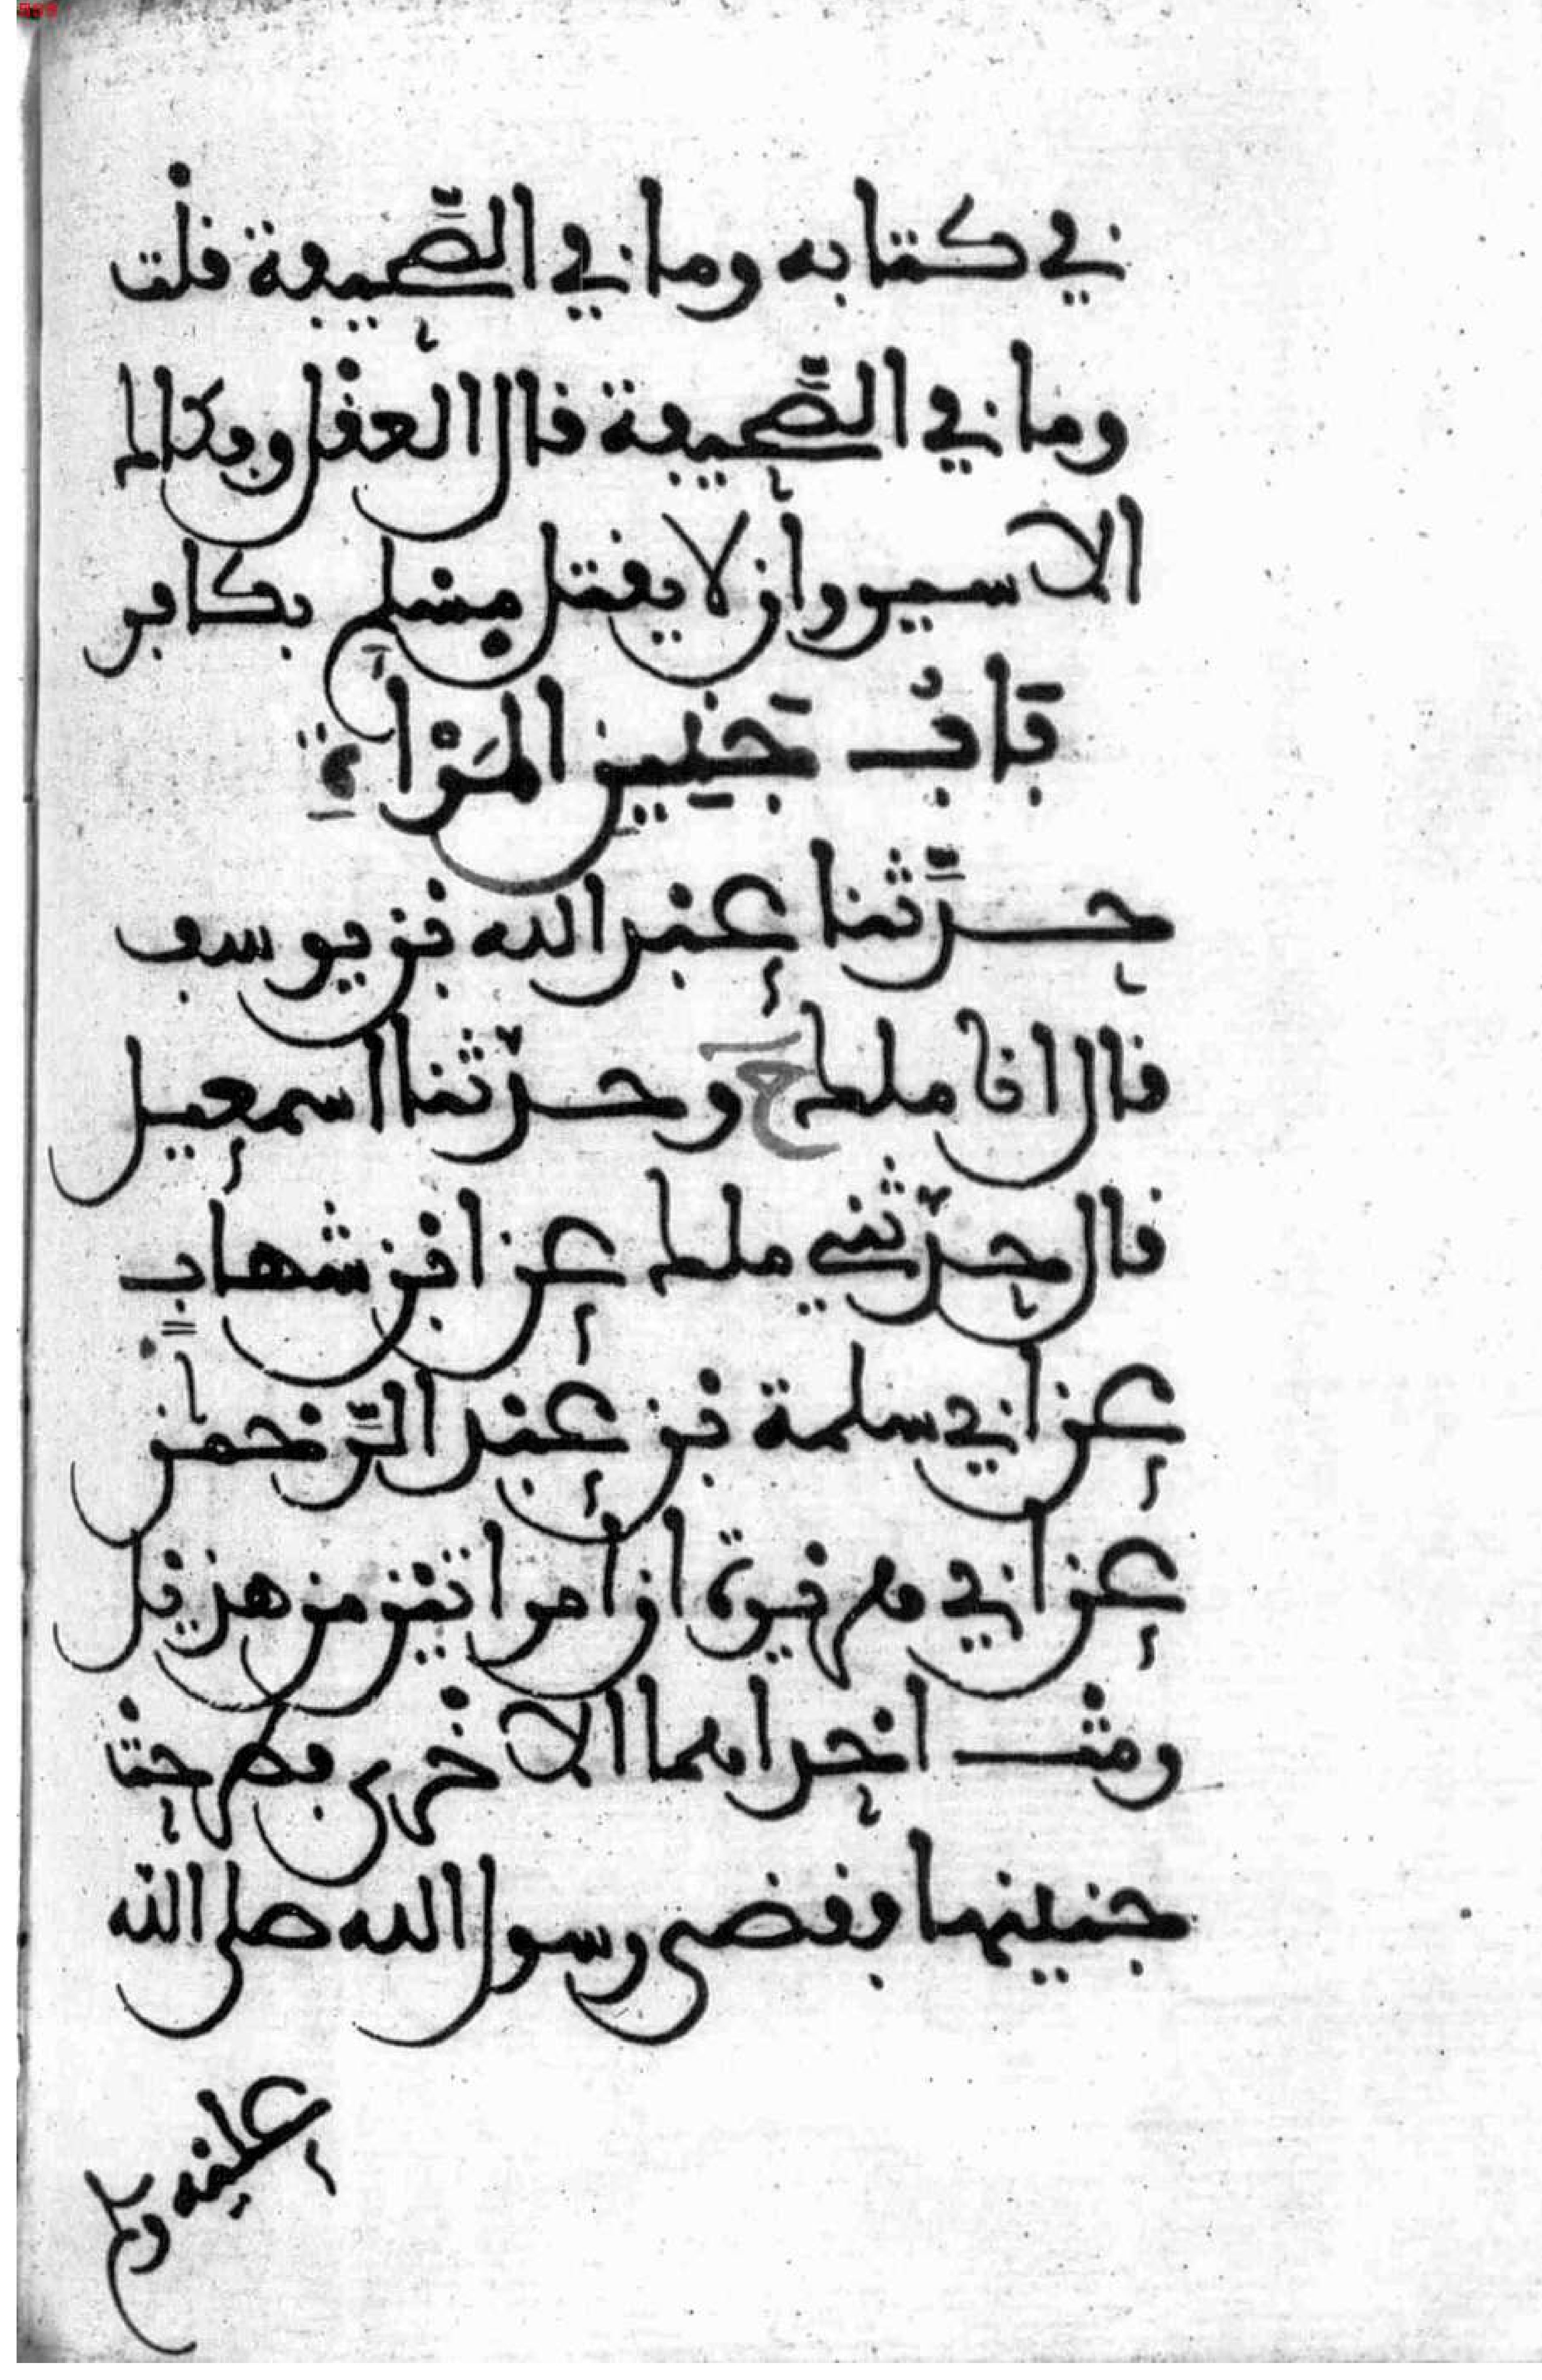 في كتابه وما في الصحيفة قلت
وما في الصحيفة قال العقل وفكاك
الاسير وان لا يقتل مسلم بكافر
باب جنين المراة
حدثنا عبد الله بن يوسف
قال انا ملك ح وحدثنا اسمعيل
قال حدثني ملك عن ابن شهاب
عن ابي سلمة بن عبد الرحمن
عن ابي هريرة ان امراتين من هذيل
رمت احداهما الاخرى فطرحت
جنينها فقضى رسول الله صلى الله
عليه وسلم